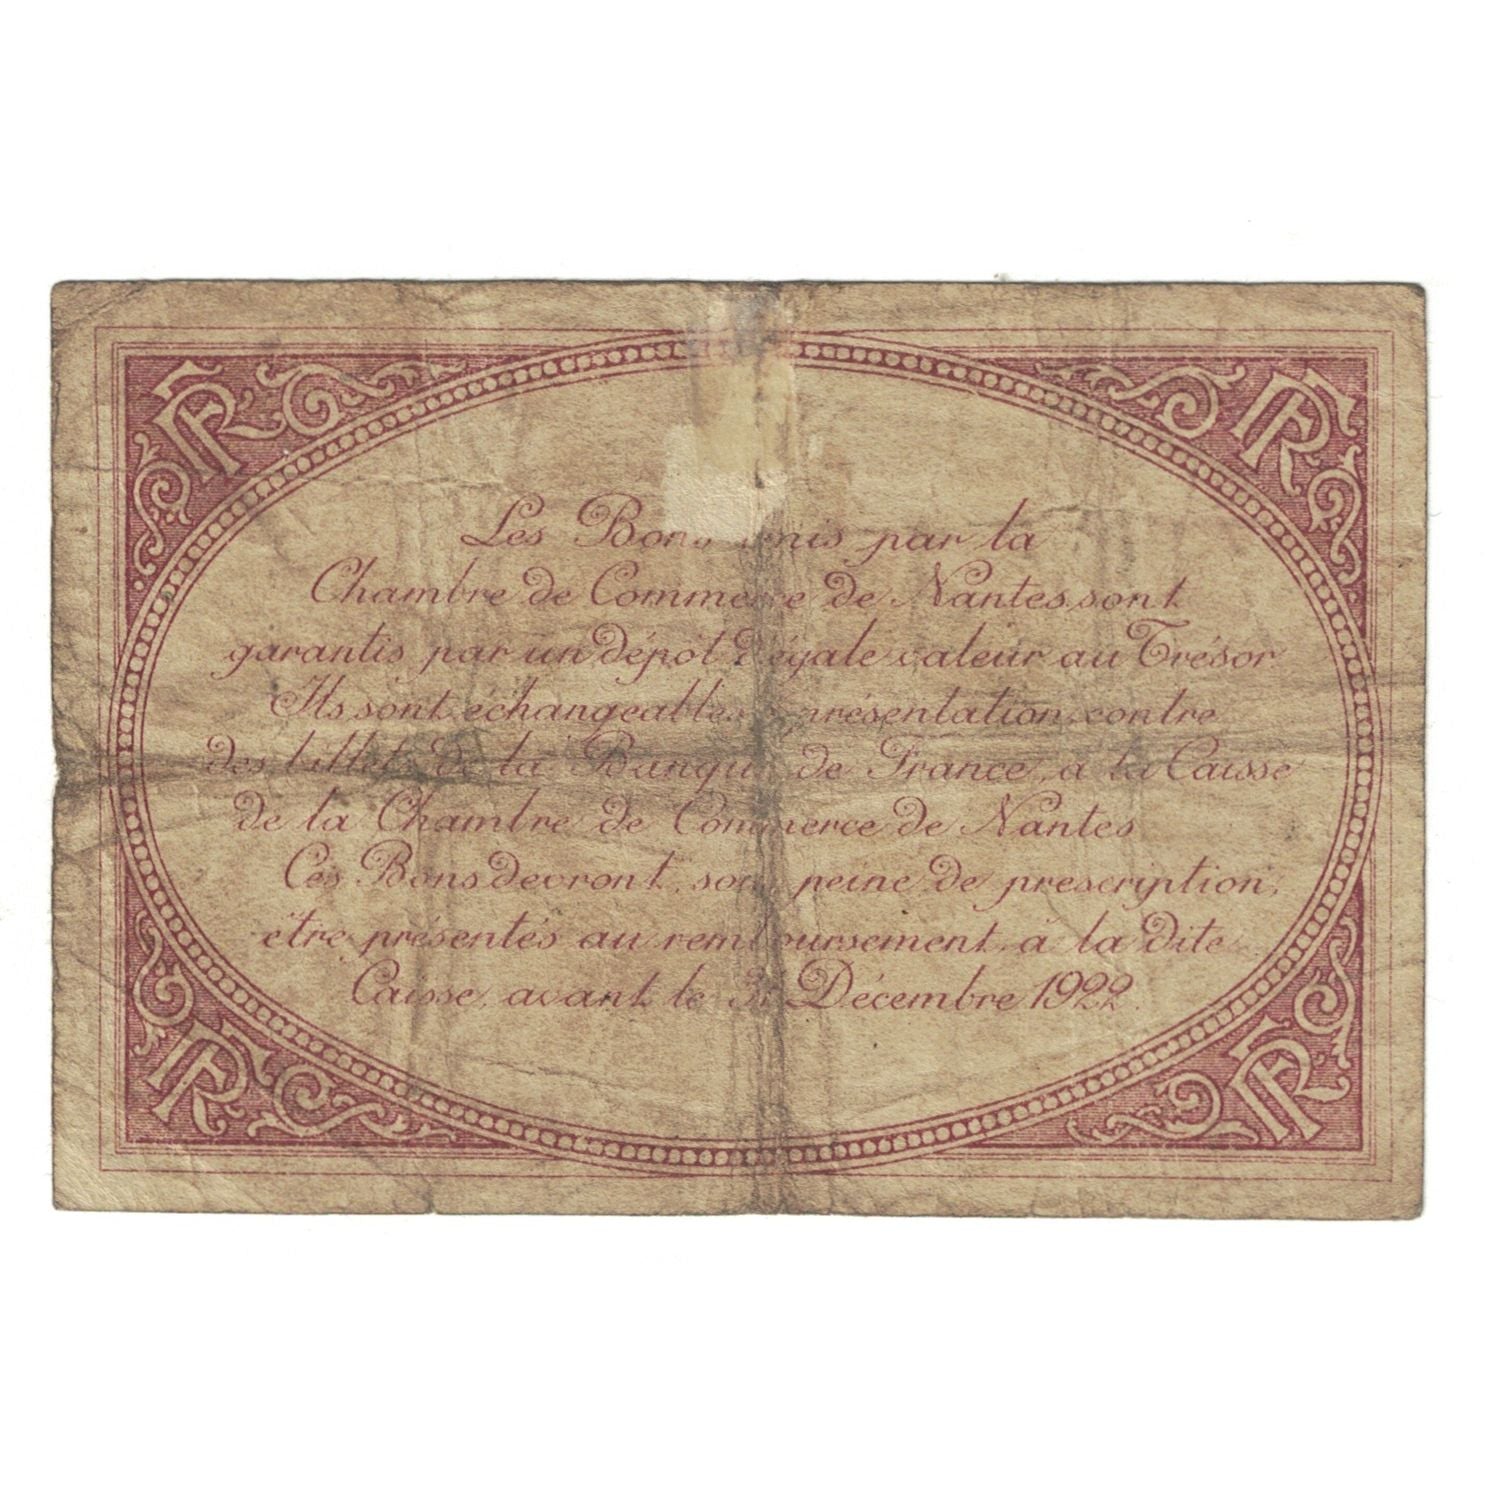 RF RF
Les Bons émis par la
Chambre de Commerce de Nantes, sont
garantis par un dépôt d'égale valeur au Trésor
Ils sont échangeables, à présentation, contre
des billets de la Banque de France, à la Caisse
de la Chambre de Commerce de Nantes
Ces Bons devront, sous peine de prescription,
être présentés au remboursement, à la dite
Caisse, avant le 31 Décembre 1922.
RF RF